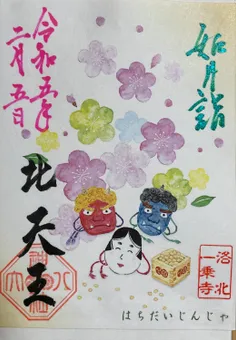 如月詣
令和五年
二月五日
北天王
八大神社
洛北
一乗寺
はちだいじんじゃ